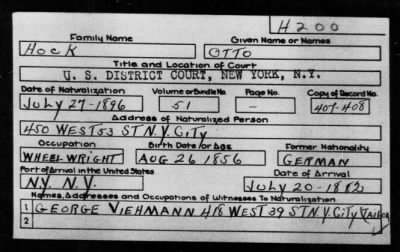 H200
Family Name Given Name or Names
HOCK OTTO
Title and Location of Court
U. S. DISTRICT COURT, NEW YORK, N.Y.
Date of Naturalization Volume or Bundle No. Page No. Copy of Record No.
JULY 27-1896 51 — 407-408
Address of Naturalized Person
450 WEST 53 ST N.Y. CITY
Occupation Birth Date or Age Former Nationality
WHEELWRIGHT AUG 26 1856 GERMAN
Port of Arrival in the United States Date of Arrival
N.Y. N.Y. JULY-20-1882
Names, Addresses and Occupations of Witnesses To Naturalization
1 GEORGE VIEHMANN 418 WEST 39 ST N.Y. CITY TAILOR
2